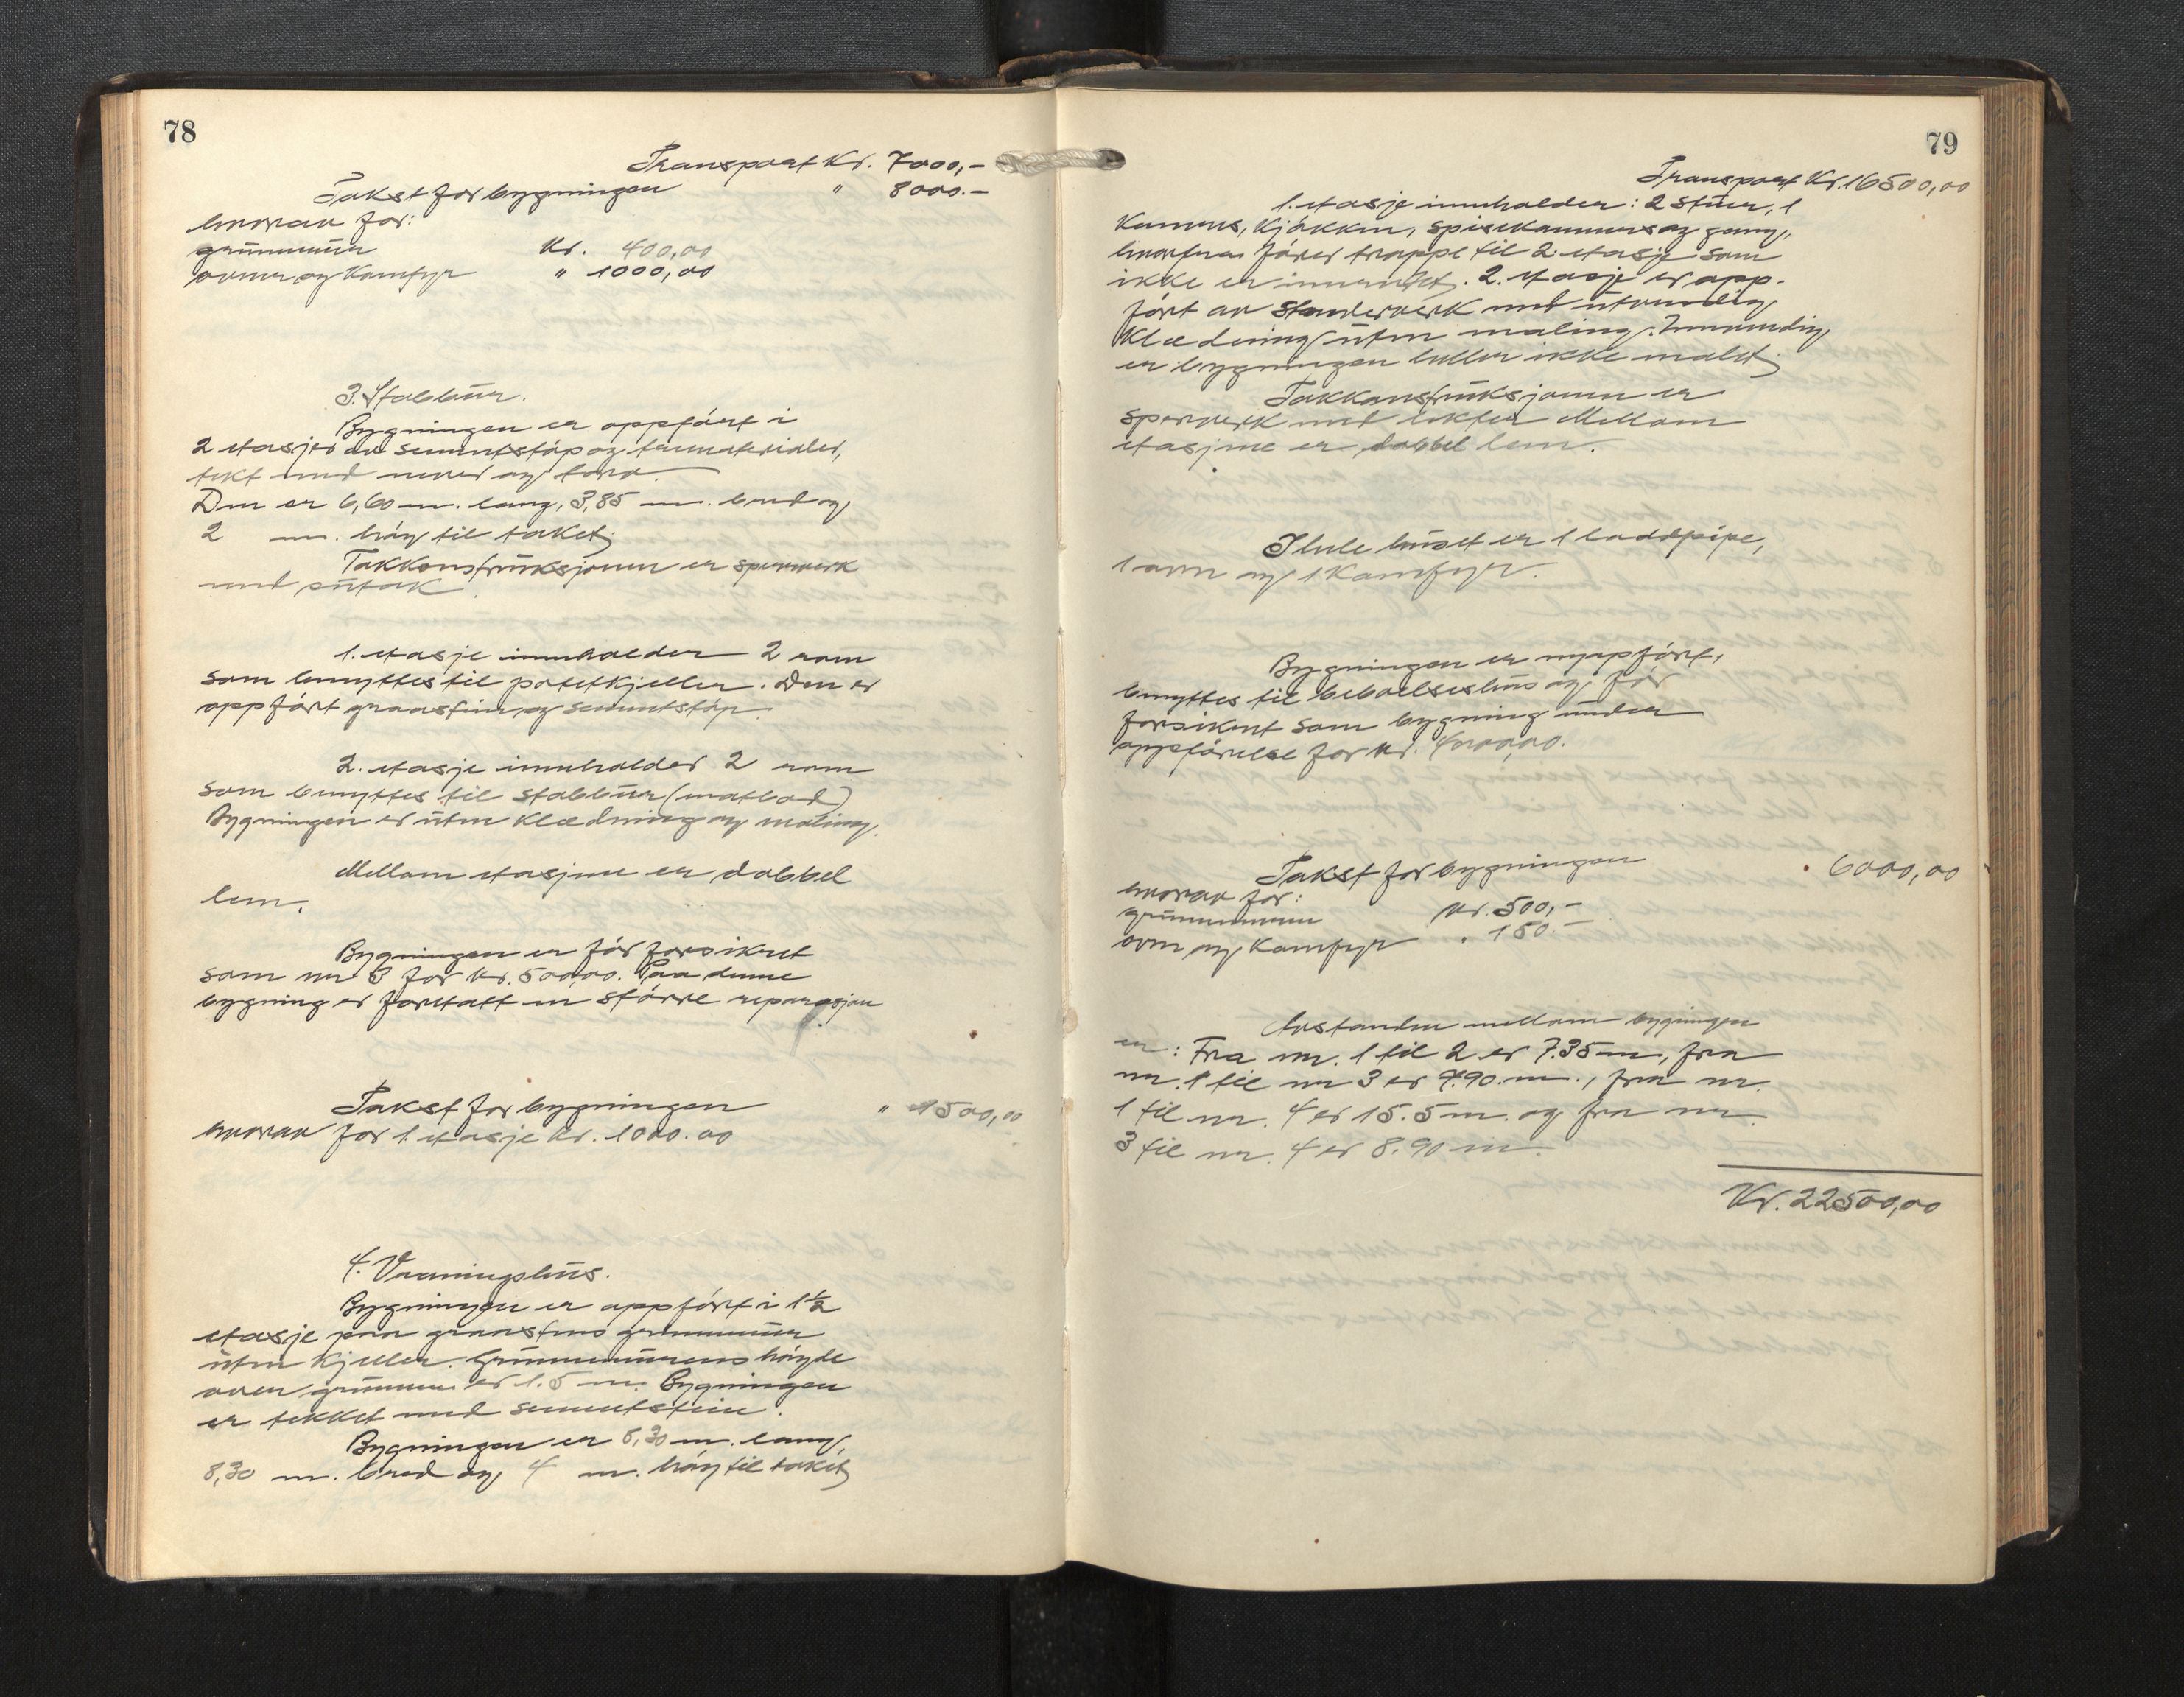 78
Transport Kr. 7000,-
Takst for bygningen " 8000.-
hvorav for:
grunnmur Kr. 400,00
ovner og Komfyr " 1000,00
3. Stabbur.
Bygningen er oppført i
2 etasjer av sementstøp og tømmaterialer,
tekt med never og torv.
Den er 6,60 m. lang, 3,85 m. bred og
2 m. høy til taket.
Takkonstruksjonen er sperrverk
med sutak.
1. etasje inneholder 2 rom
som benyttes til potetkjeller. Den er
oppført graasten og sementstøp.
2. etasje inneholder 2 rom
som benyttes til stabbur (matbod)
Bygningen er uten Klædning og maling.
Mellom etasjene er dobbel
lem.
Bygningen er før forsikret
som nr. 3 for Kr. 500,00. Paa denne
bygning er foretatt en større reparasjon
Takst for bygningen " 1500,00
hvorav for 1 etasje Kr. 1000.00
4. Vaaningshus.
Bygningen er oppført i 1½
etasje paa graastens grunnmur
uten Kjeller. Grunnmurens høyde
over grunnen er 1.5 m. Bygningen
er tekket med sementstein.
Bygningen er 8,30 m. lang,
8,30 m. bred og 4 m. høy til taket
79
Transport Kr. 16500,00
1. etasje inneholder: 2 stuer, 1
Kammers, Kjøkken, spisekammers og gang,
hvorfra fører trappe til 2. etasje som
ikke er innredet. 2. etasje er opp-
ført av Stenderverk med utvendig
Klædning uten maling. Innvendig
er bygningen heller ikke malet.
Takkonstruksjonen er
sperrverk med lekter Mellom
etasjene er dobbel lem.
I hele huset er 1 loddpipe,
1 ovn og 1 Komfyr.
Bygningen er nyoppført,
benyttes til beboelseshus og før
forsikret som bygning under
oppførelse for Kr. 4000,00.
Takst for bygningen " 6000,00
hvorav for:
grunnmuren Kr. 500,-
ovn og Komfyr " 150.-
Avstanden mellom bygningen
er: Fra nr. 1 til 2 er 7.35 m, fra
nr. 1 til nr 3 er 4.90 m., fra nr.
1 til nr. 4 er 15.5 m. og fra nr.
3 til nr. 4 er 8.90 m.
Kr. 22500,00